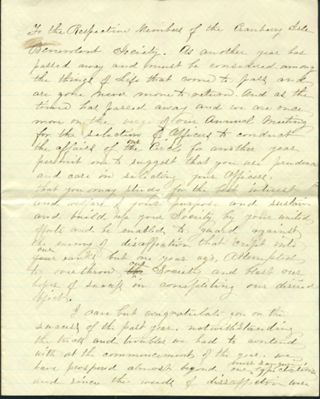 To the Respective Members of the Cranberry Isle
Benevolent Society. As another year has
passed away and must be considered among
the things of Life that come to pass and
are gone never more to return. And as the
time has passed away and we are once
more on the verge of our Annual Meeting
for the selection of Officers to conduct
the affairs of the for another year
permit me to suggest that you use prudence
and care in selecting your Officers.
that you may study for the best interest
and welfare of your purpose and sustain
and build up your Society by your united
efforts and be enabled to guard against
the enemy of disaffection that crept into
our ranks but one year ago, Attempted
to overthrow our Societies and blast our
hopes of success in completing our desired
object.
I can but congratulate you on the
success of the past year, notwithstanding
the trials and troubles we had to contend
with at the commencement of the year. we
have prospered almost beyond our expectations
and since the weeds of disaffection were